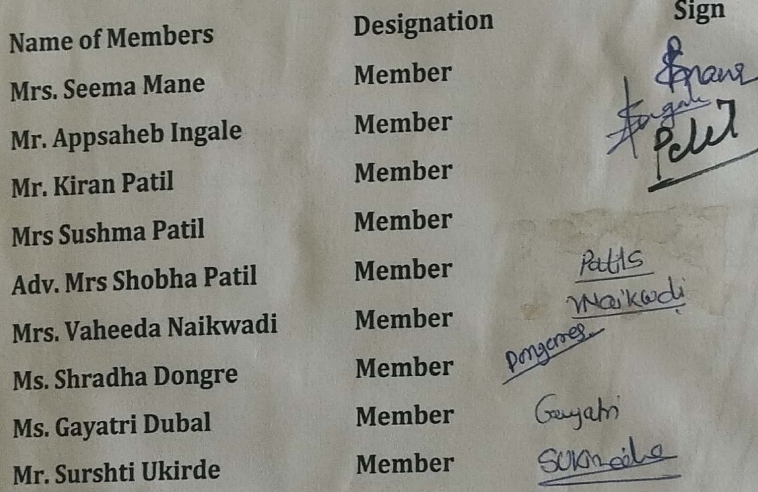 Name of Members Designation Sign
Mrs. Seema Mane Member Smane
Mr. Appsaheb Ingale Member Ingale
Mr. Kiran Patil Member
Mrs Sushma Patil Member
Adv. Mrs Shobha Patil Member Patil S
Mrs. Vaheeda Naikwadi Member VNaikwadi
Ms. Shradha Dongre Member
Ms. Gayatri Dubal Member Gayatri
Mr. Surshti Ukirde Member